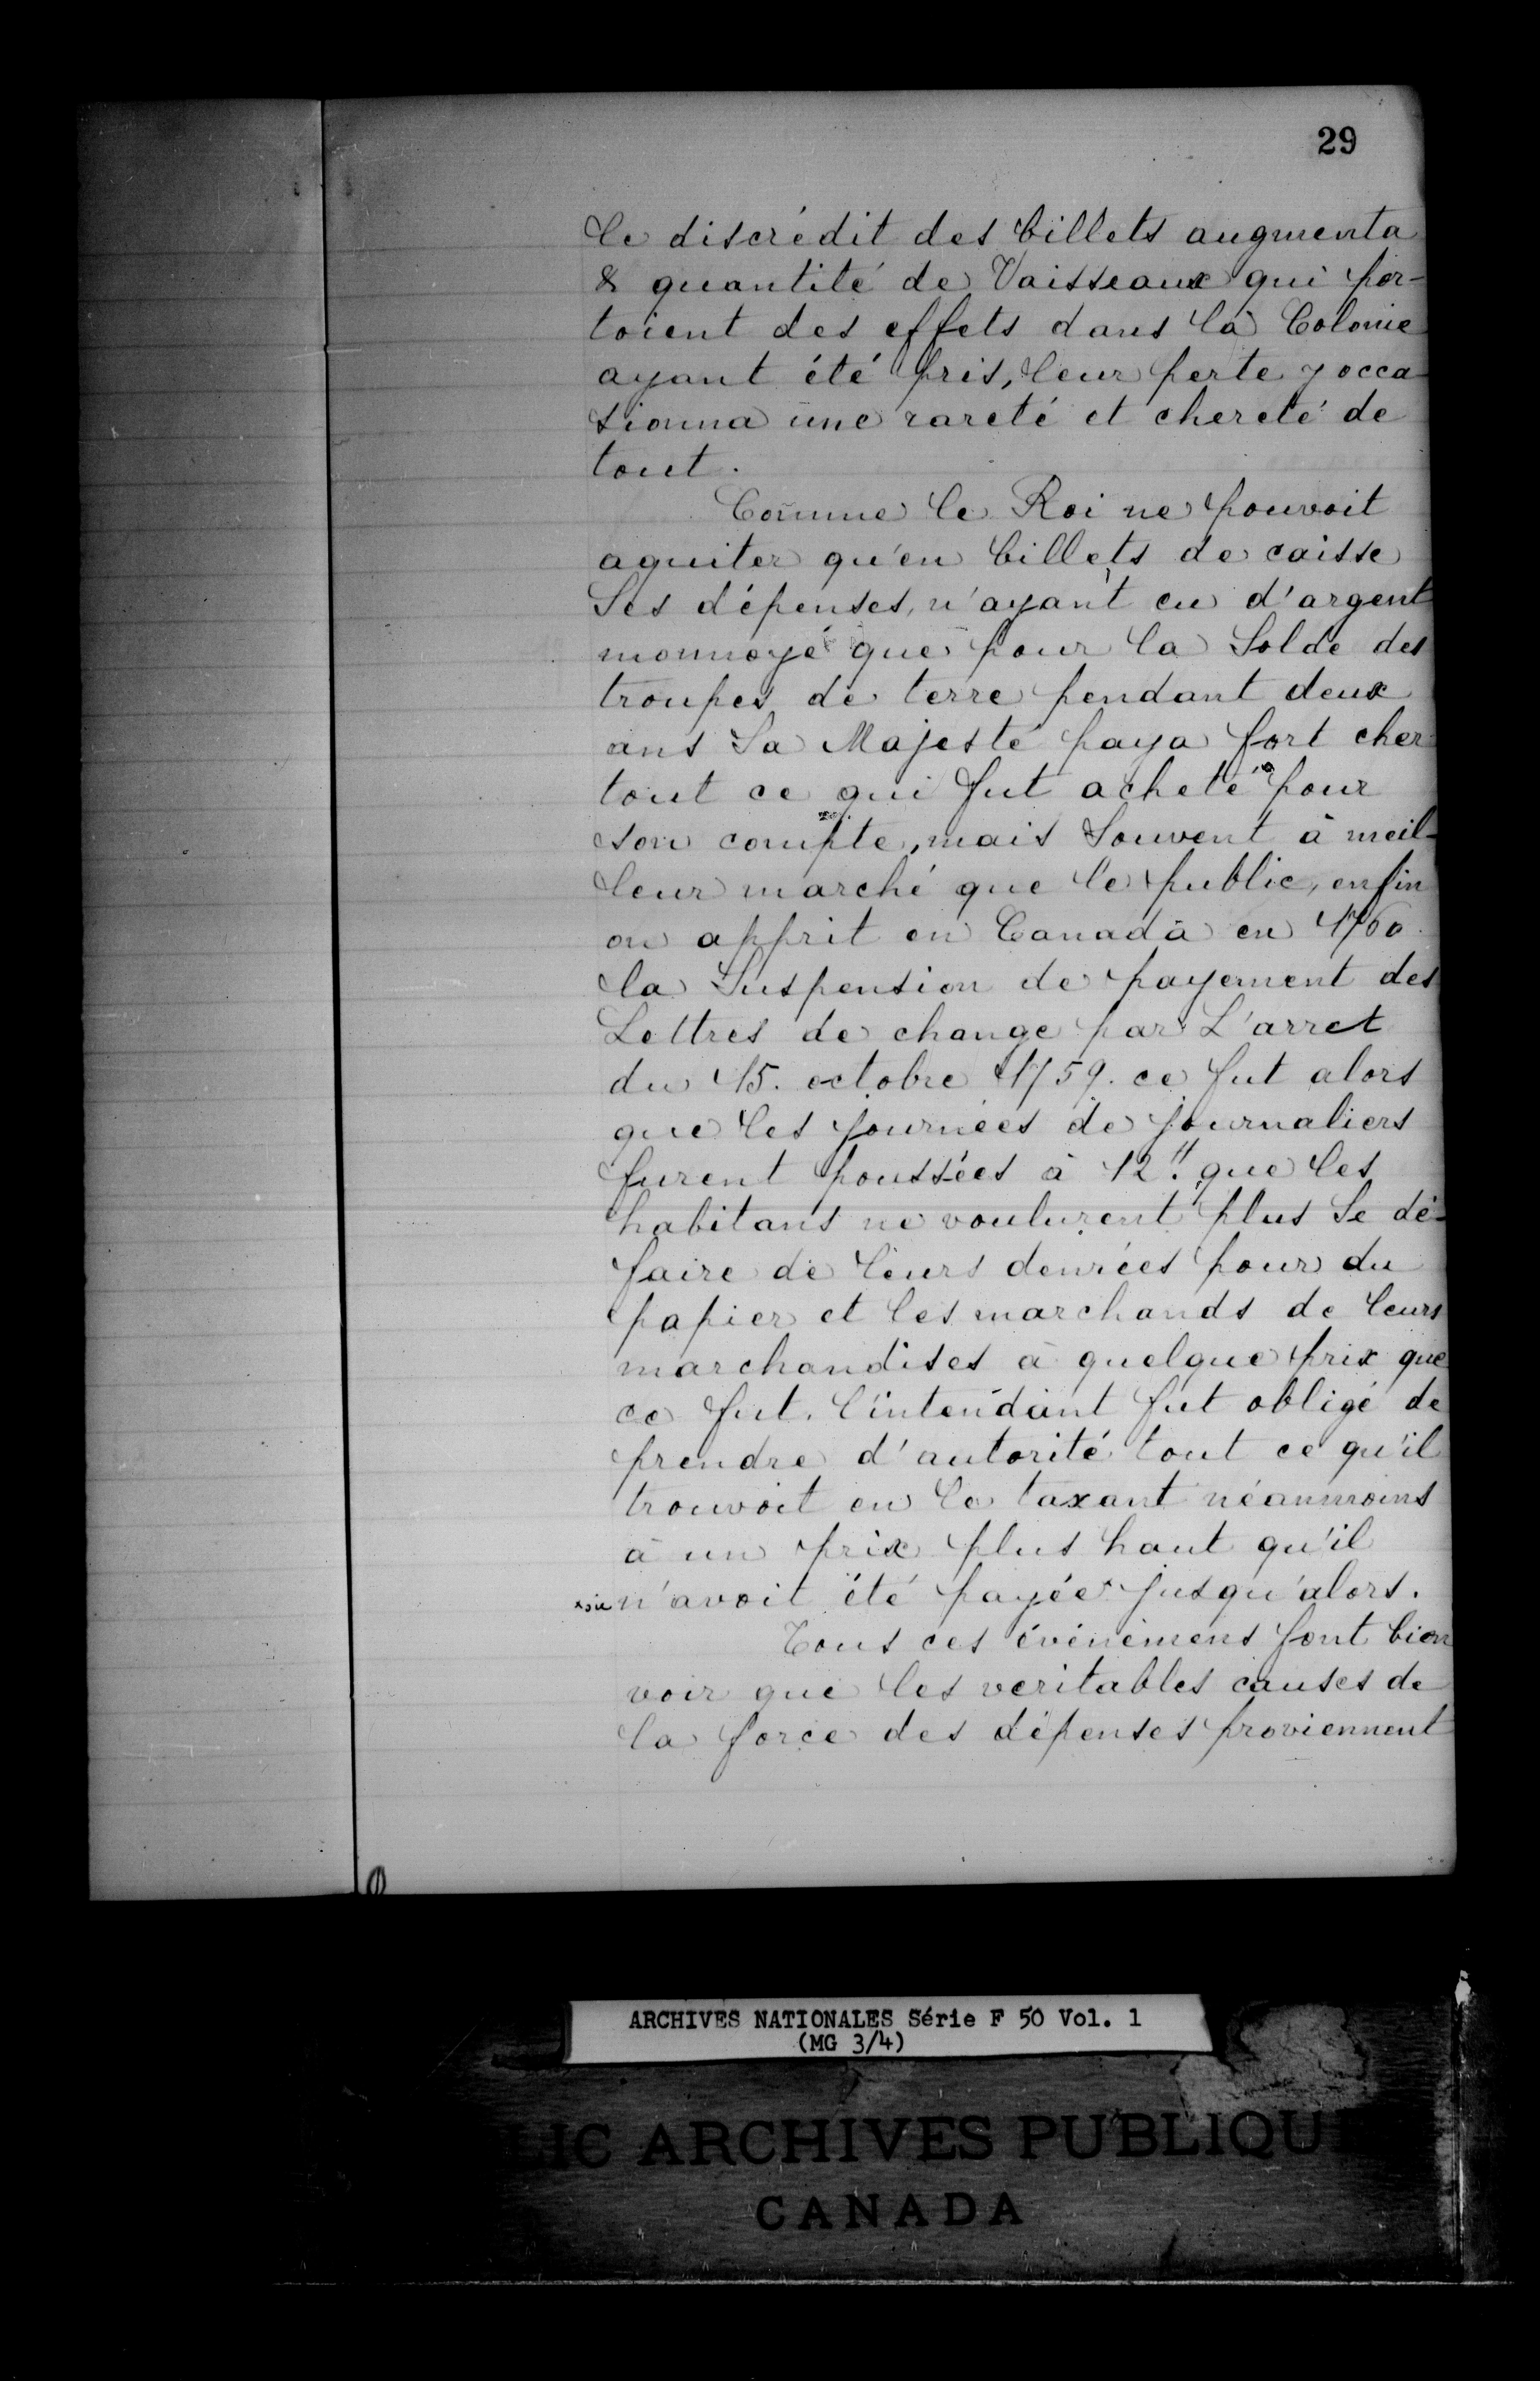 29
le discrédit des billets augmenta
& quantité de Vaisseaux qui por-
toient des effets dans la Colonie
ayant été pris, leur perte y occa
sionna une rareté et chereté de
tout.
Comme le Roi ne pouvoit
aquiter qu'en billets de caisse
Ses dépenses, n'ayant eu d'argent
monnoyé que pour la Solde des
troupes de terre pendant deux
ans Sa Majesté paya fort cher
tout ce qui fut acheté pour
son compte, mais Souvent à meil-
leur marché que le public, enfin
on apprit en Canada en 1760.
la Suspension de payement des
Lettres de change par L'arret
du 15. octobre 1759. ce fut alors
que les journées de journaliers
furent poussées à 12.ʰ que les
habitans ne voulurent plus Se dé-
faire de leurs denrées pour du
papier et les marchands de leurs
marchandises à quelque prix que
ce fut. l'intendant fut obligé de
prendre d'autorité tout ce qu'il
trouvoit en le taxant néanmoins
à un prix plus haut qu'il
xsic n'avoit été payéex jusqu'alors.
Tous ces événemens font bien
voir que les veritables causes de
la force des dépenses proviennent
ARCHIVES NATIONALES Série F 50 Vol. 1
(MG 3/4)
LIC ARCHIVES PUBLIQU
CANADA